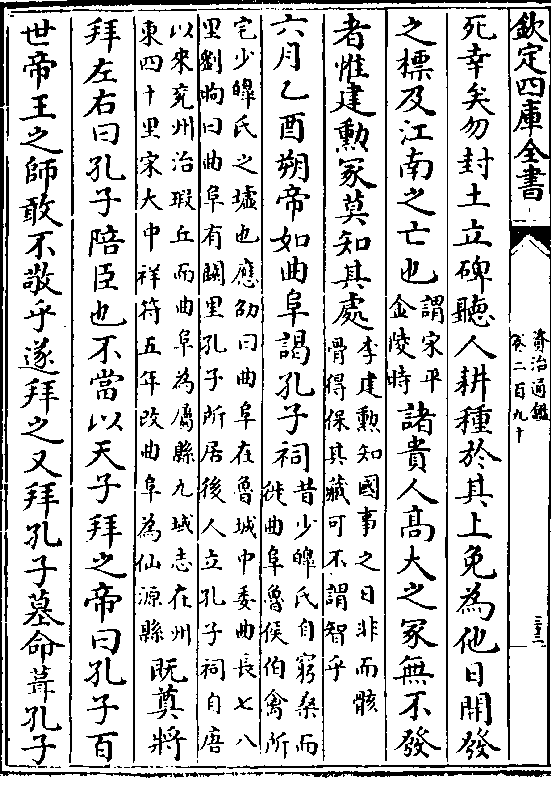 欽定四庫全書
資治通鑑
卷二百九十
三十三
死幸矣勿封土立碑聽人耕種於其上免為他日開發
之標及江南之亡也
謂宋平
金陵時
諸貴人高大之冢無不發
者惟建勲冢莫知其處
李建勲知國事之日非而骸
骨得保其藏可不謂智乎
六月乙酉朔帝如曲阜謁孔子祠
昔少皥氏自窮桑而
徙曲阜魯侯伯禽所
宅少皥氏之墟也應劭曰曲阜在魯城中委曲長七八
里劉昫曰曲阜有闕里孔子所居後人立孔子祠自唐
以來兖州治瑕丘而曲阜為屬縣九域志在州
東四十里宋大中祥符五年改曲阜為仙源縣
既奠將
拜左右曰孔子陪臣也不當以天子拜之帝曰孔子百
世帝王之師敢不敬乎遂拜之又拜孔子墓命葺孔子